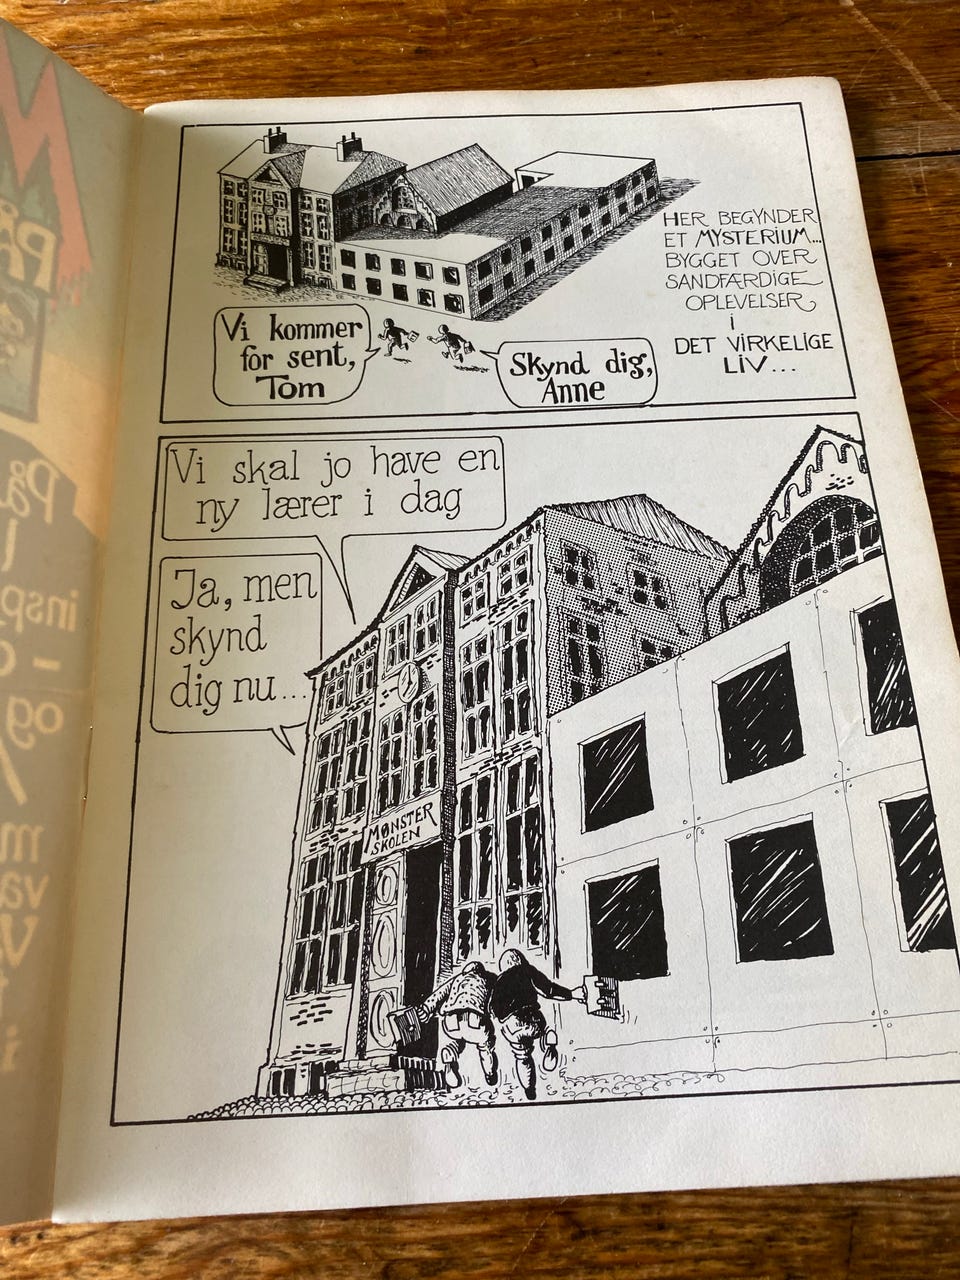 HER BEGYNDER
ET MYSTERIUM...
BYGGET OVER
SANDFÆRDIGE
OPLEVELSER
i
DET VIRKELIGE
LIV...
Vi kommer
for sent,
Tom
Skynd dig,
Anne
Vi skal jo have en
ny lærer i dag
Ja, men
skynd
dig nu...
MØNSTER
SKOLEN